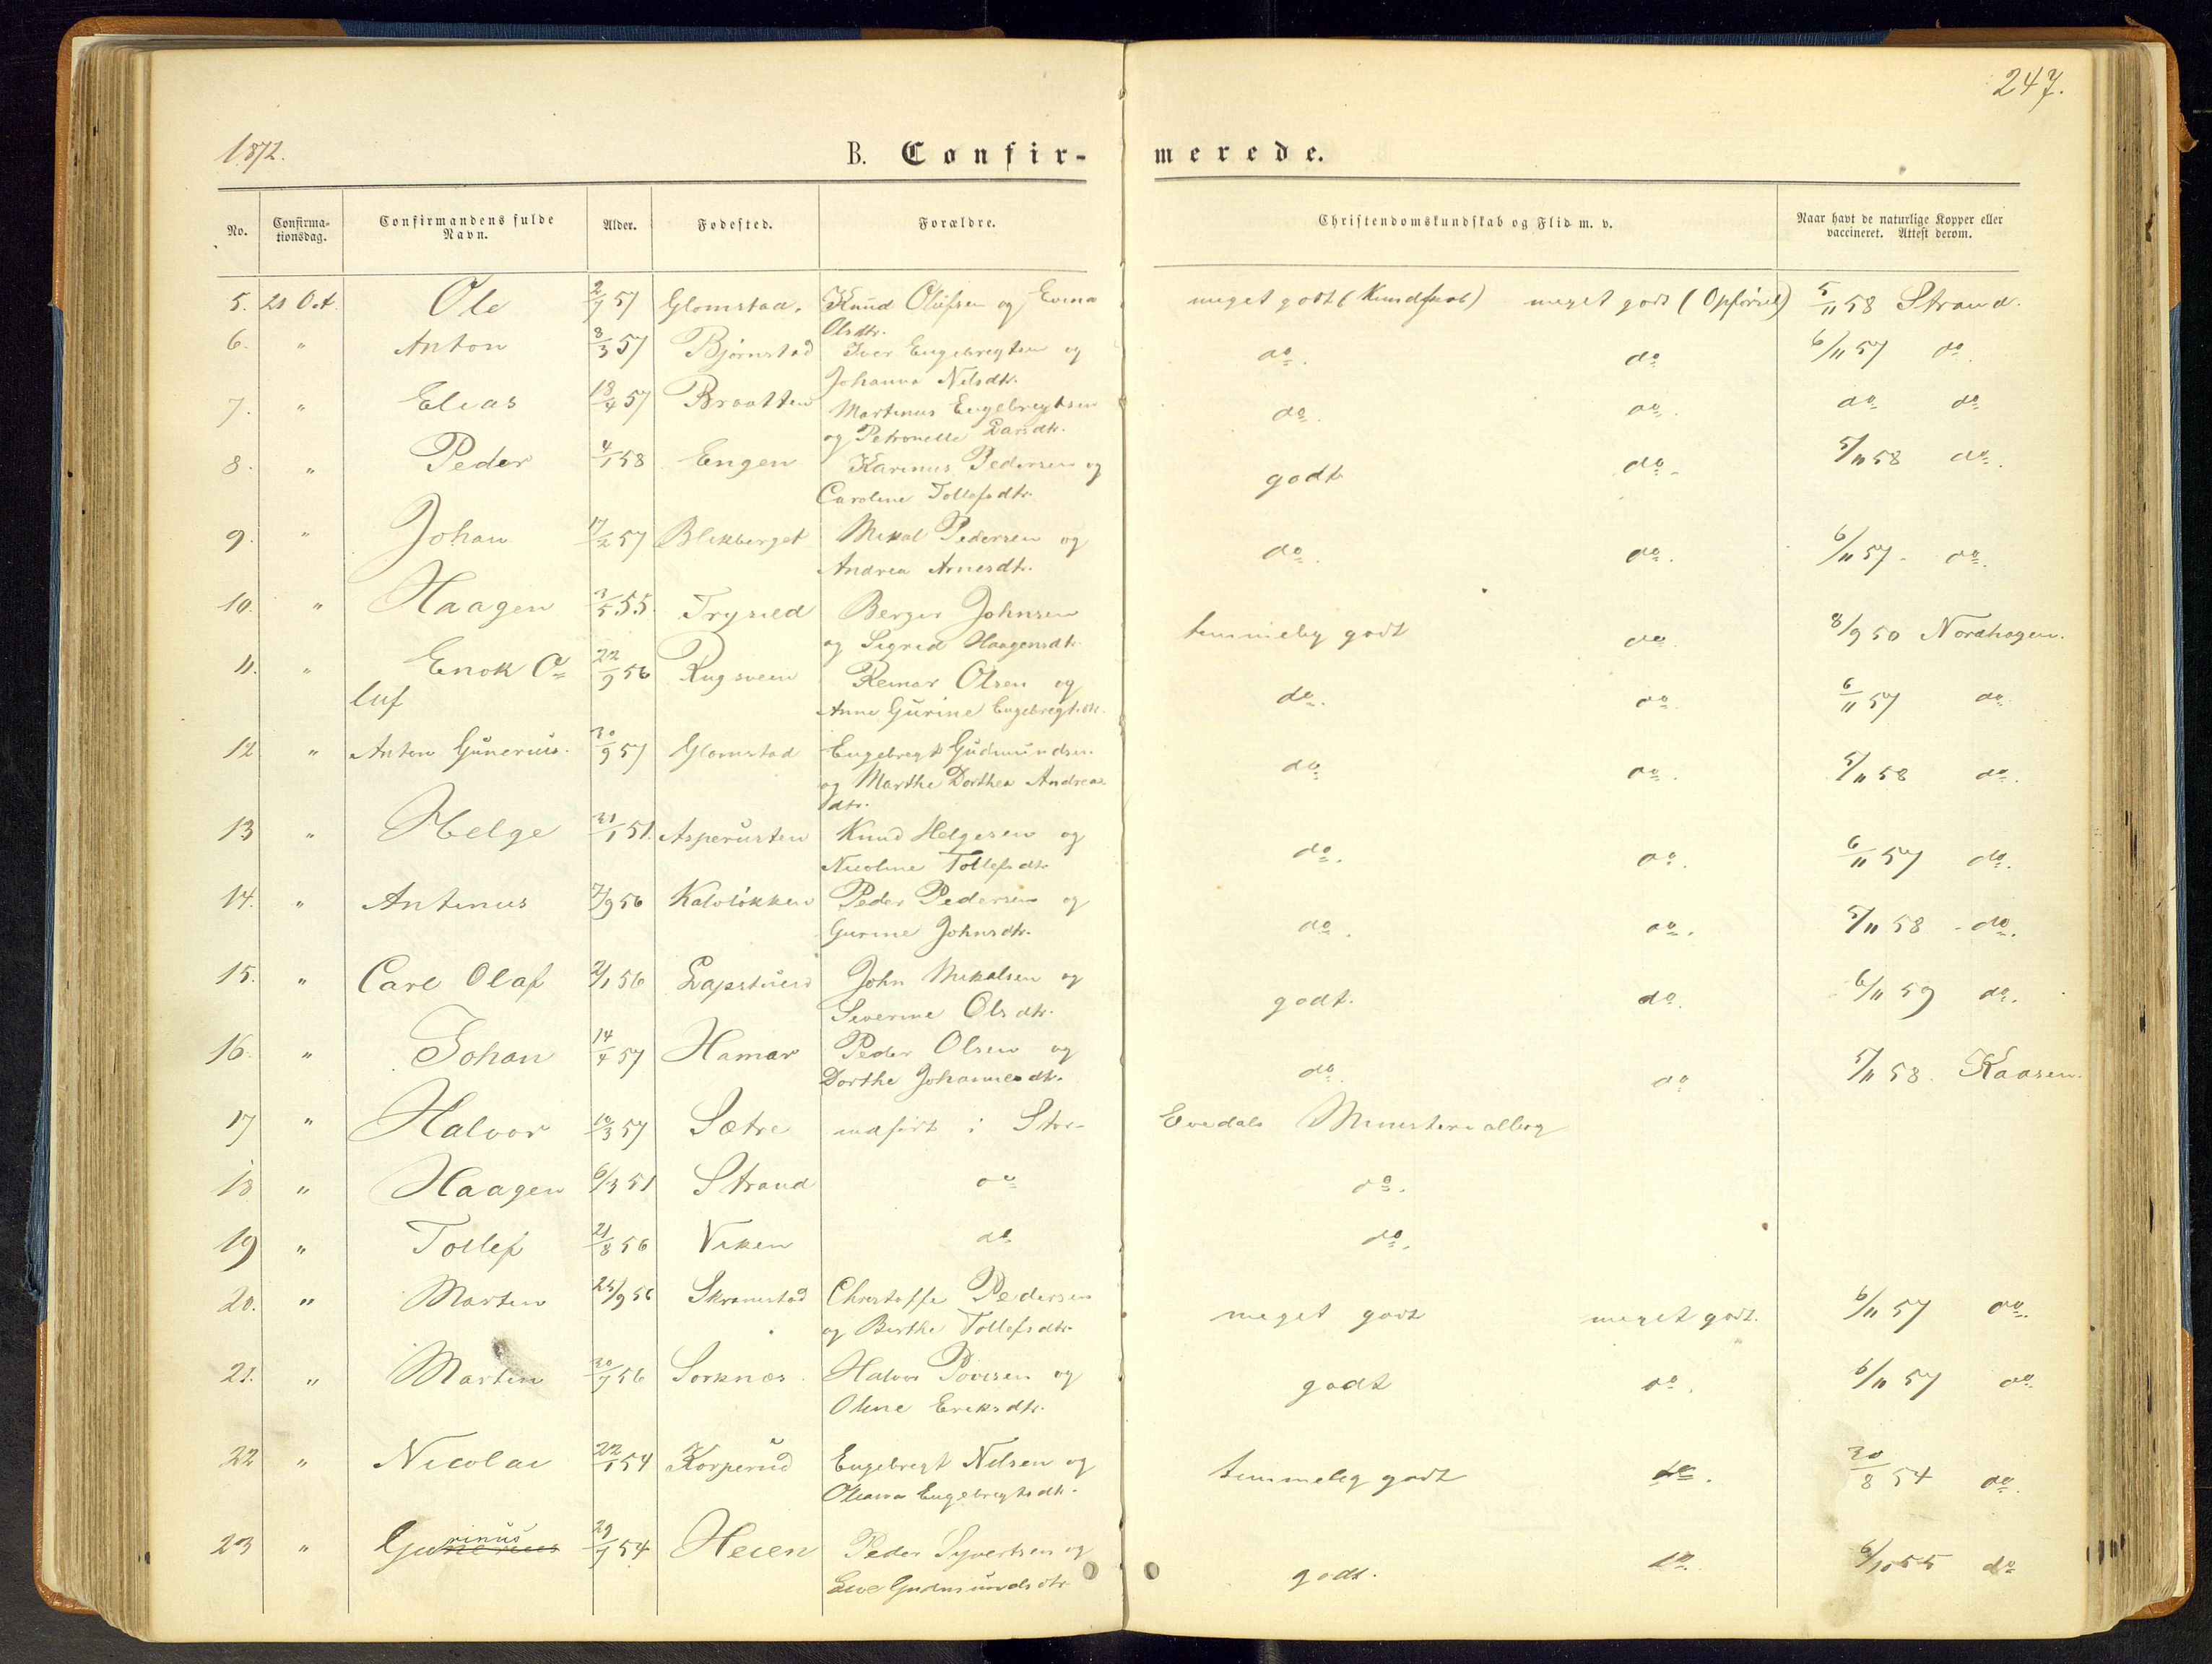 247.
1872.
B. Confir-
merede.
No. Confirma-tionsdag. Confirmandens fulde Navn. Alder. Fødested. Forældre. Christendomskundskab og Flid m. v. Naar havt de naturlige Kopper eller vaccineret. Attest derom.
5. 21 Oct. Ole 2/7 57 Glomstad. Knud Olufsen og Evena meget godt (Kundskab) meget godt (Opførsel) 5/11 58 Strand.
Olsdtr.
6. " Anton 8/3 57 Bjørnstad Iver Engebregtsen og do. do. 6/11 57 do.
Johanna Nilsdtr.
7. " Elias 18/4 57 Braatten Martinus Engebregtsen do. do. do do
og Petronelle Larsdtr.
8. " Peder 4/1 58 Engen Karinus Pedersen og godt do. 5/11 58 do.
Caroline Tollefsdtr.
9. " Johan 17/2 57 Blikberget Mikal Pedersen og do. do. 6/11 57. do.
Andrea Arnesdtr.
10. " Haagen 3/5 55. Trysild Berger Johnsen temmelig godt do. 8/9 50 Nordhagen.
og Sigrid Haagensdtr.
11. " Enok O= 22/9 56 Rugsveen Reinar Olsen og do. do. 6/11 57 do.
luf Anne Gurine Engebregtsdtr.
12 " Anton Gunerius. 30/9 57 Glomstad Engebregt Gudmundsen do do. 5/11 58 do.
og Marthe Dorthea Andreas
dtr.
13 " Helge 31/1 51. Asperusten Knud Helgesen og do. do. 6/11 57 do.
Nicoline Tollefsdtr.
14. " Antinus 7/9 56 Kalvløkken Peder Pedersen og do. do. 5/11 58 - do.
Gurine Johnsdtr.
15. " Carl Olaf 2/1 56 Lapstuen John Mikalsen og godt. do. 6/11 59 do.
Severine Olsdtr.
16. " Johan 14/4 57 Hamar Peder Olsen og do. do 5/11 58. Kaasen.
Dorthe Johannesdtr.
17 " Halvor 10/3 57 Sætre indført i Stor- Evedals Ministerialbog
18 " Haagen 6/3 51 Strand do do.
19 " Tollef 21/8 56 Viken do do.
20. " Martin 25/9 56 Skramstad Christoffe Pedersen meget godt meget godt. 6/11 57 do.
og Berthe Tollefsdtr.
21. " Martin 30/7 56 Sorknæs. Halvor Povesen og godt do. 6/11 57 do.
Oline Eriksdtr.
22 " Nicolai 22/1 54 Korperud Engebregt Nilsen og temmelig godt do. 30/8 54 do.
Oleana Engebregtsdtr.
23 " Gurinus 29/7 54 Heien Peder Syvertsen og godt. do. 6/10 55 do
Live Gudmundsdtr.